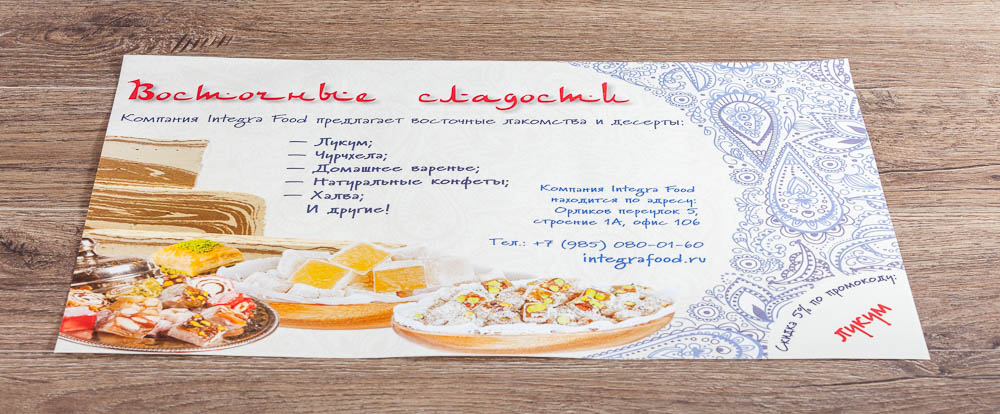 Восточные сладости
Компания Integra Food предлагает восточные лакомства и десерты:
— Лукум;
— Чурчхела;
— Домашнее варенье;
— Натуральные конфеты;
— Халва;
И другие!
Компания Integra Food
находится по адресу:
Орликов переулок 5,
строение 1А, офис 106
Тел.: +7 (985) 080-01-60
integrafood.ru
Скидка 5% по промокоду:
ЛУКУМ